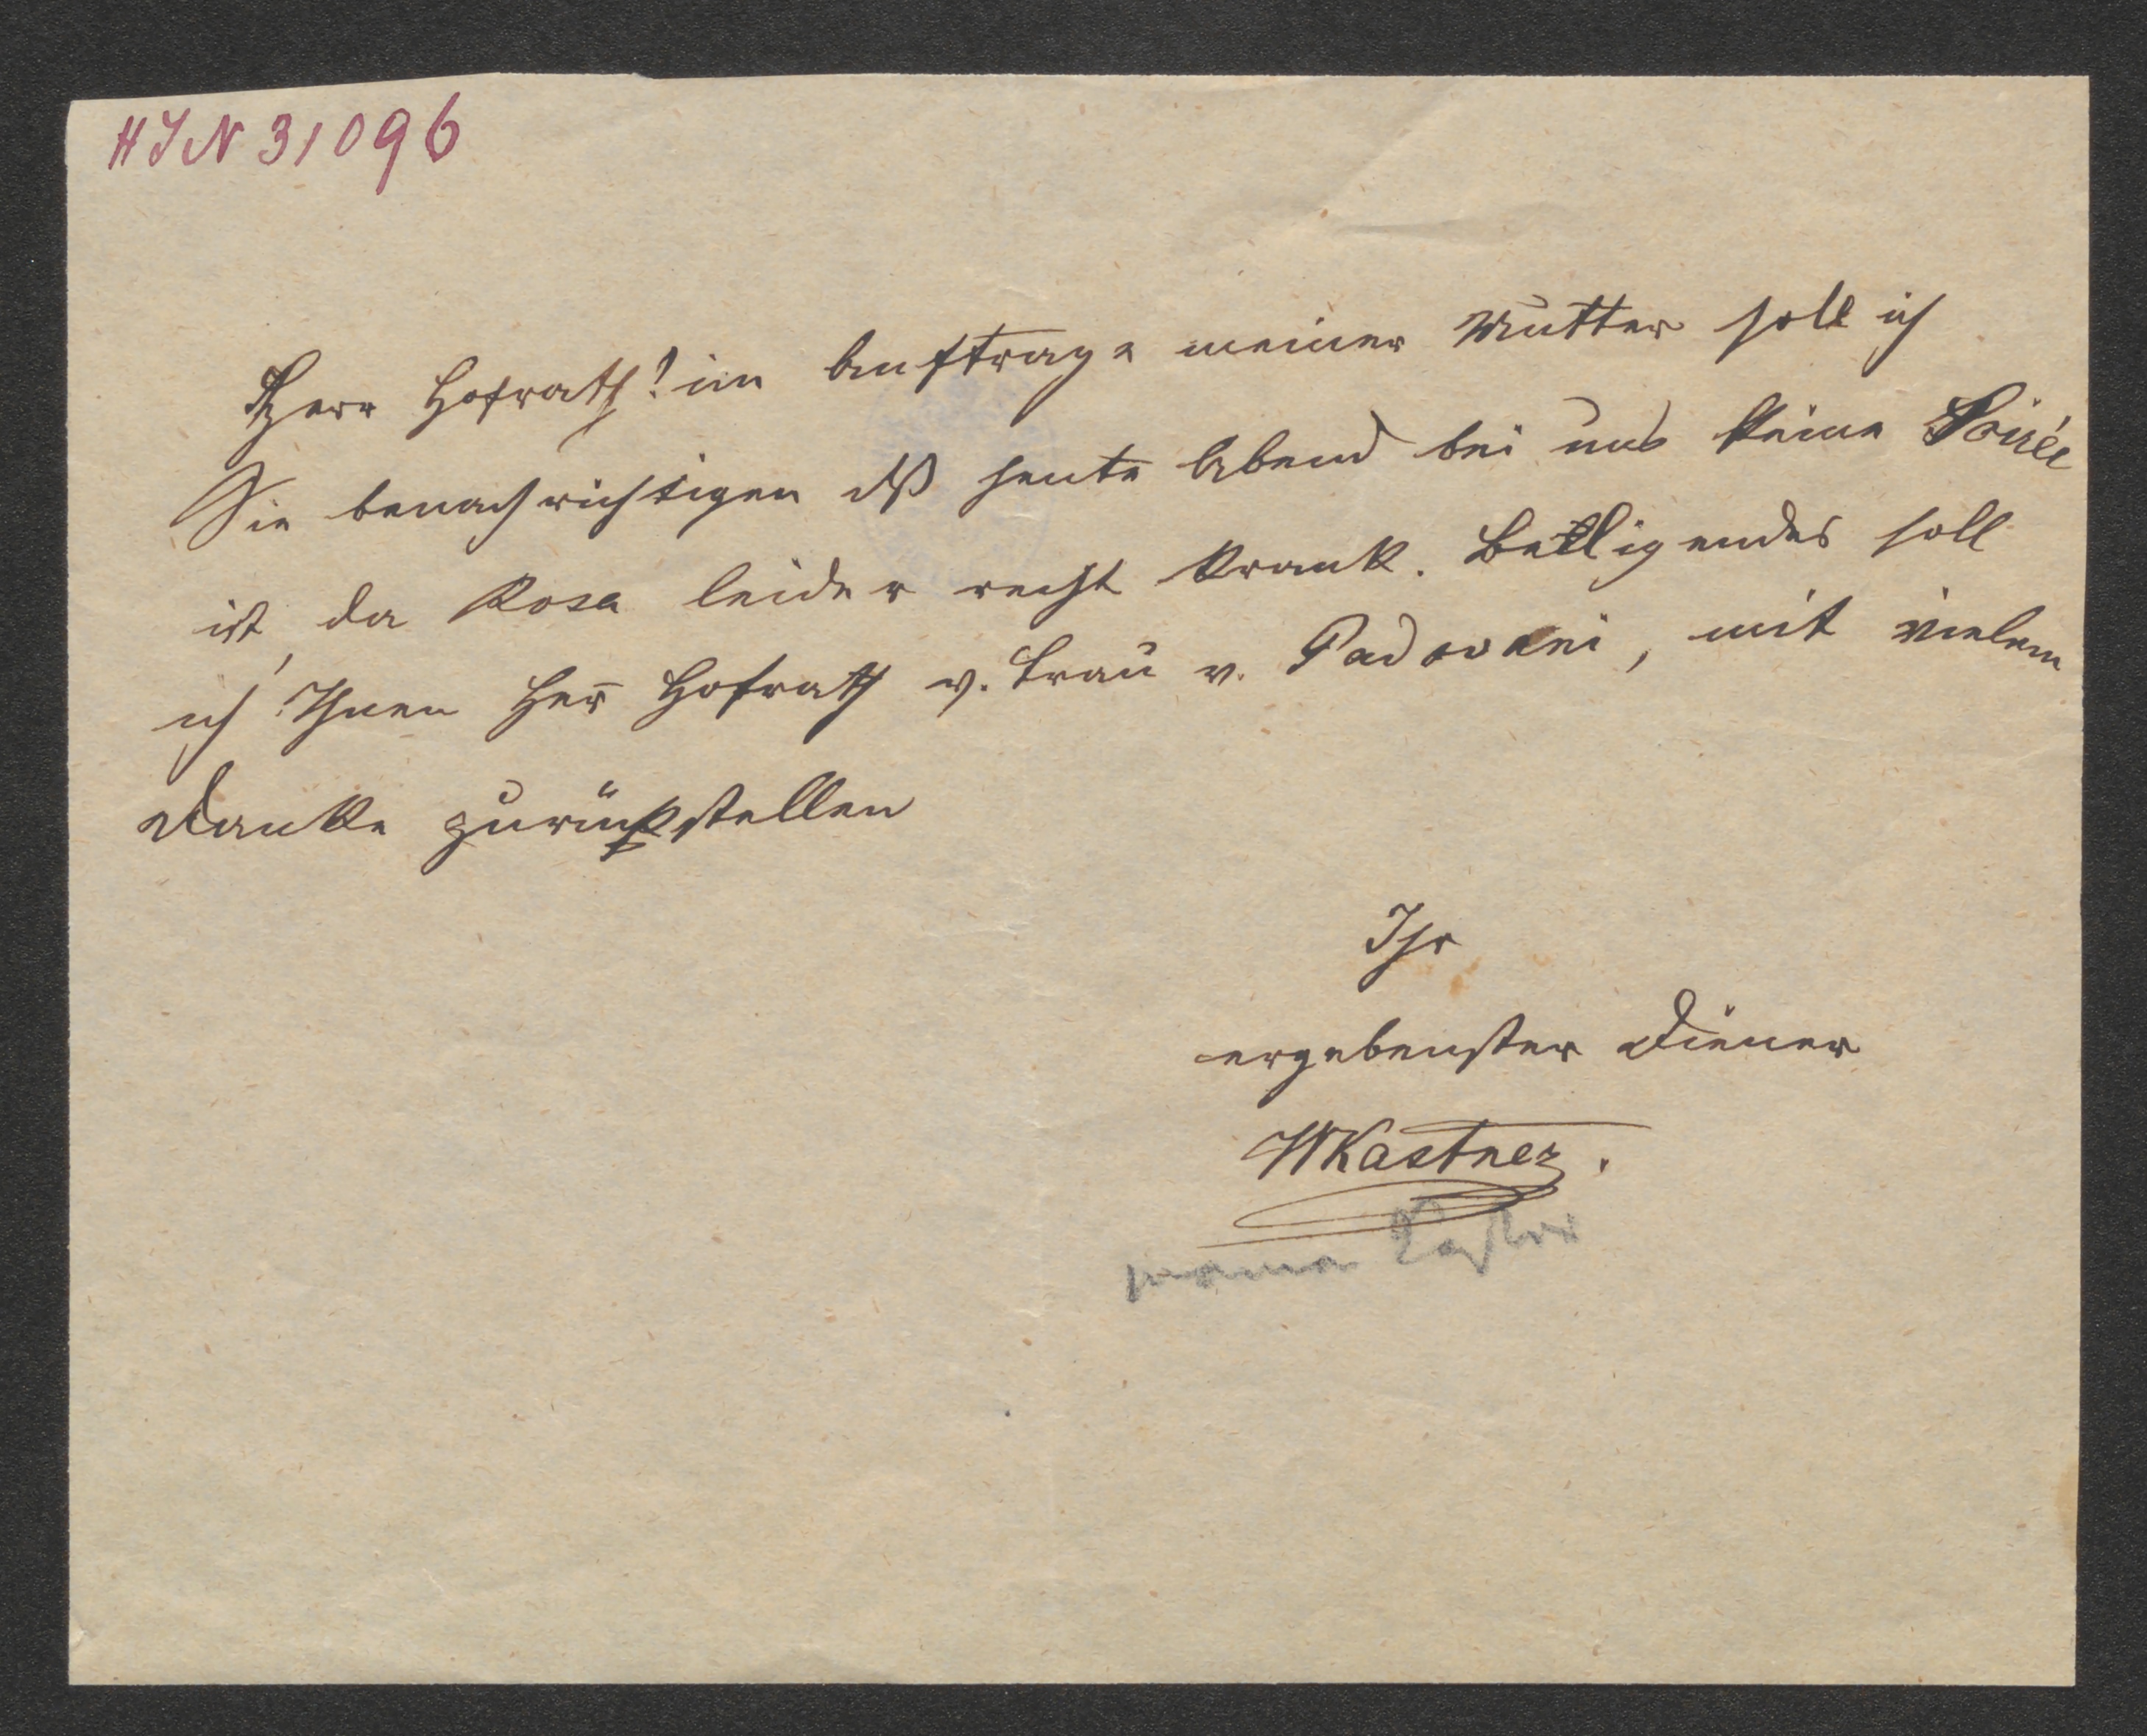 HIN 31096
Herr Hofrath! im Auftrage meiner Mutter soll ich
Sie benachrichtigen dß heute Abend bei uns keine Soirée
ist, da Rosa leider recht krank. Beiligendes soll
ich Ihnen Her̄ Hofrath v. Frau v. Padovani, mit vielem
Danke zurückstellen
Ihr
ergebenster Diener
WKastner.